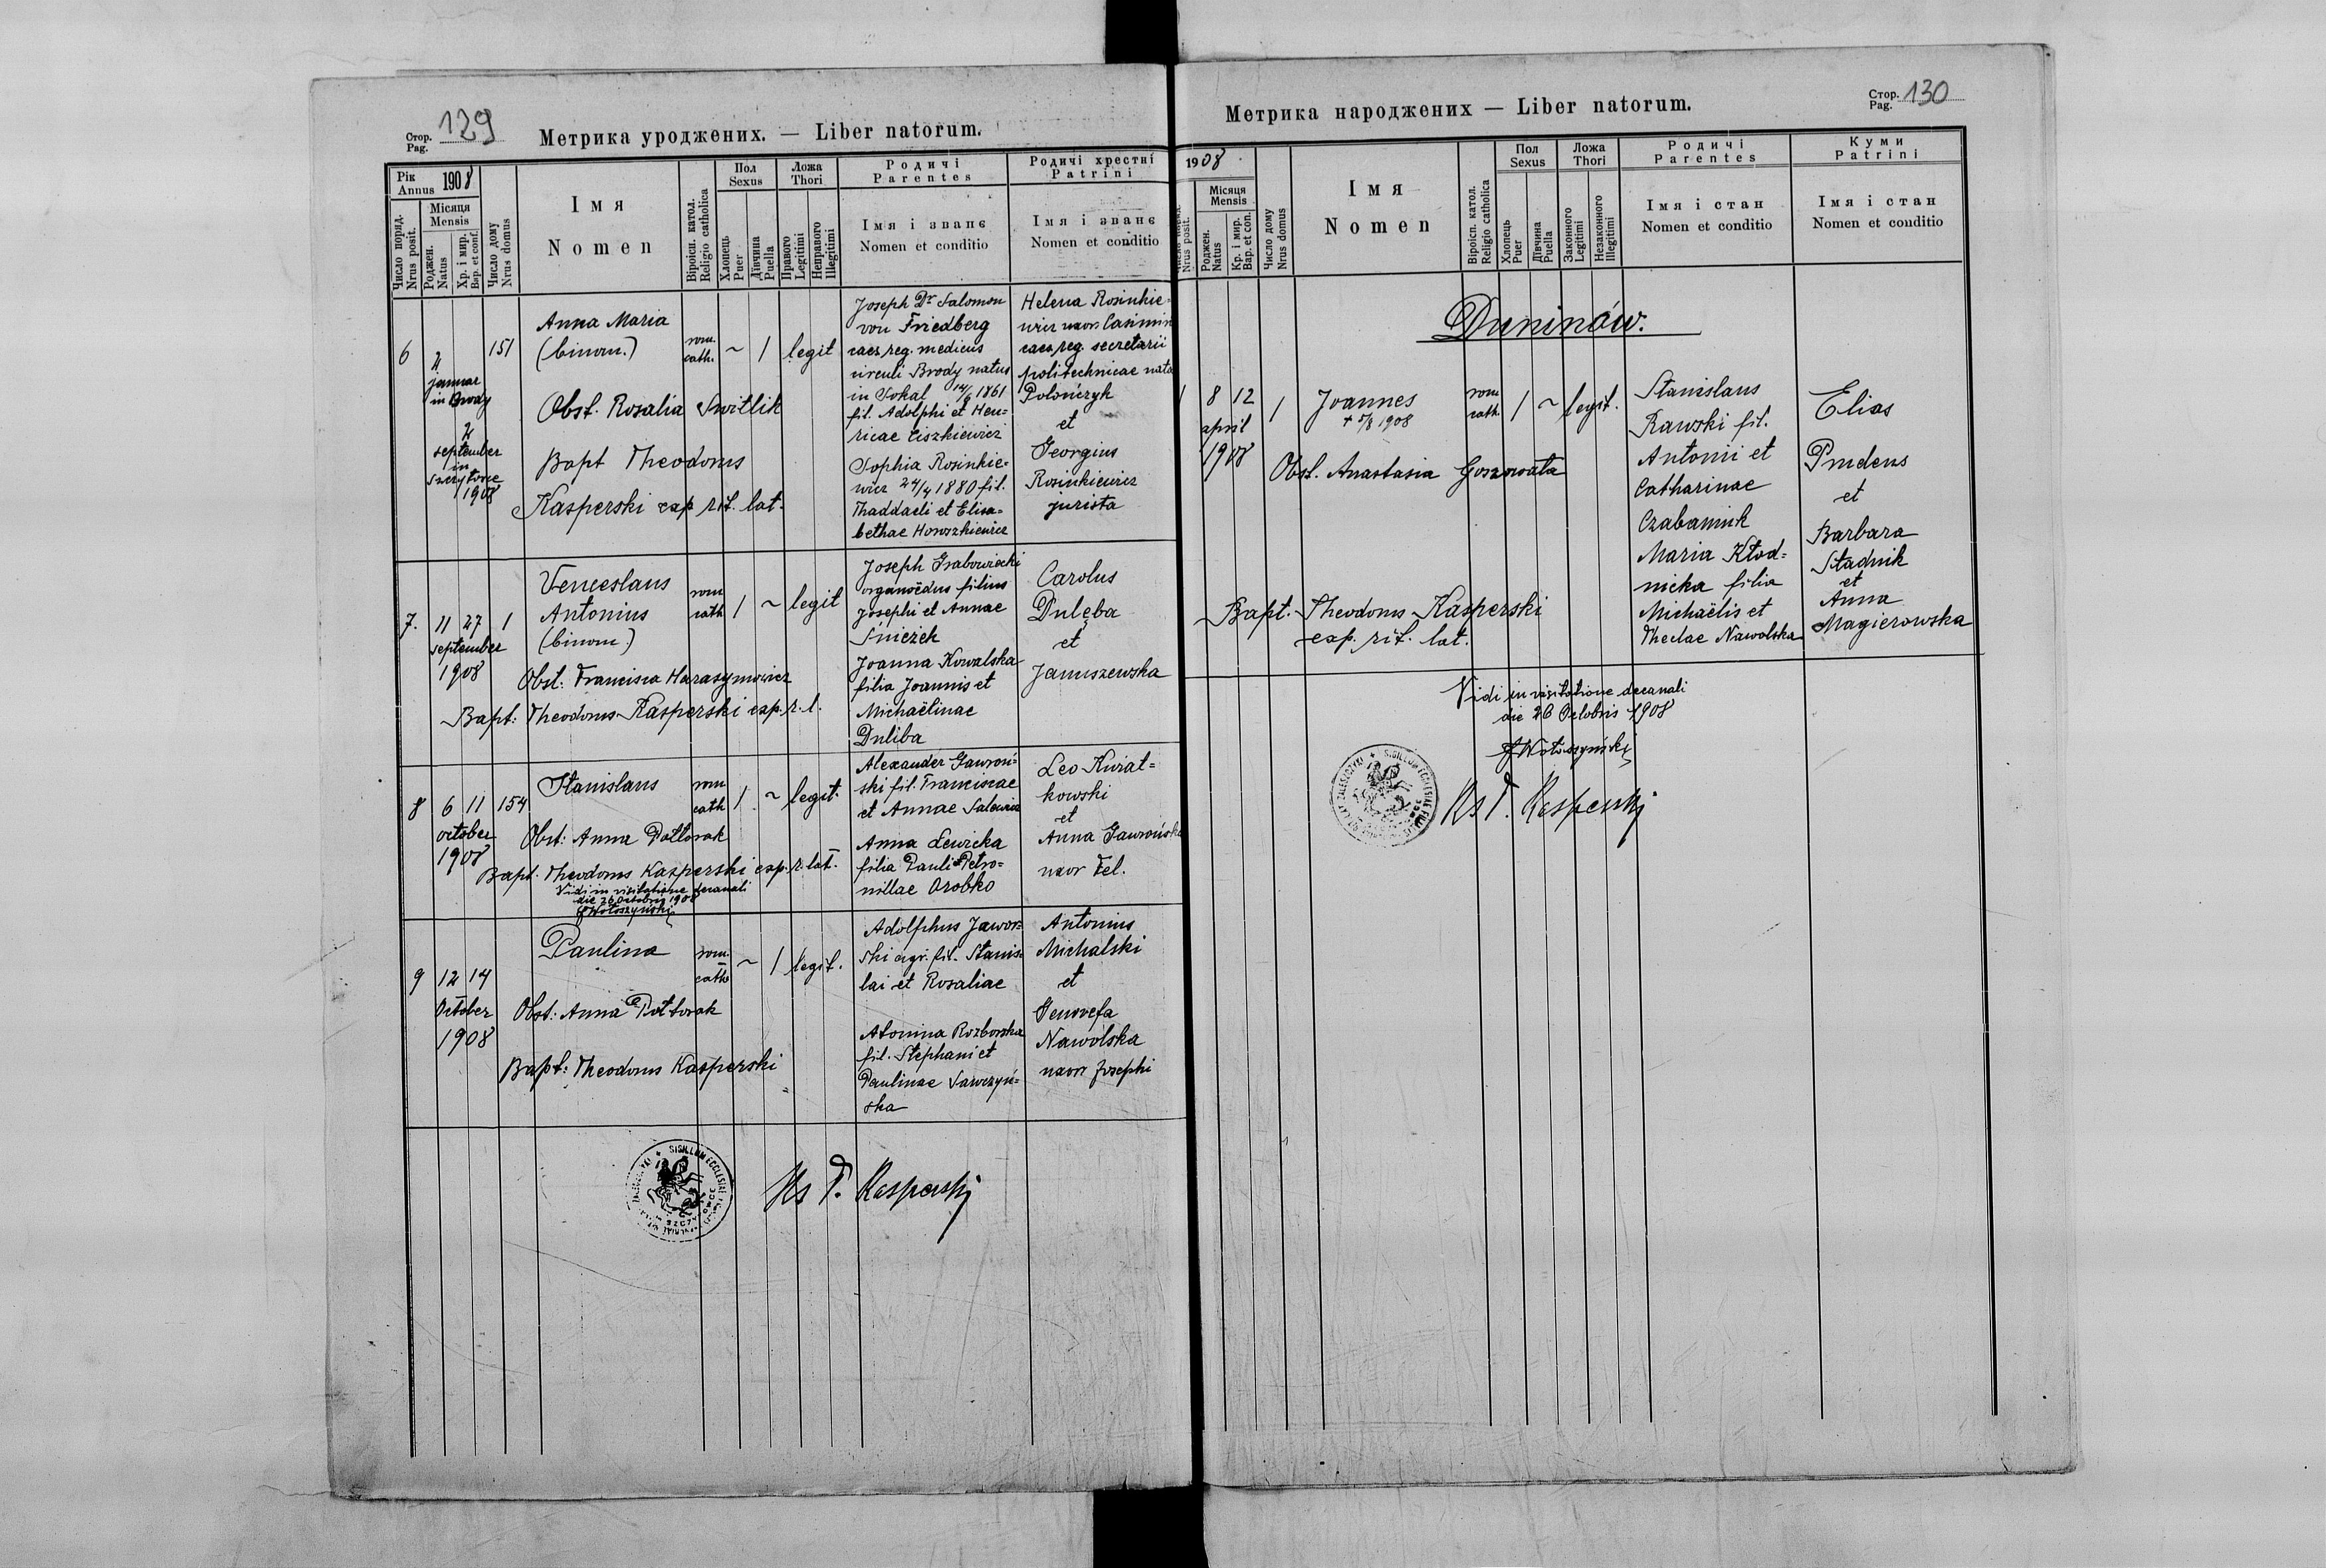 Стор.
Pag. 129
Метрика уроджених. — Liber natorum.
Рік
Annus 1908
Число поряд.
Nrus posit.
Місяця
Mensis
Роджен.
Natus
Хр. і мир.
Bap. et conf.
Число дому
Nrus domus
Імя
Nomen
Віроісп. катол.
Religio catholica
Пол
Sexus
Хлопець
Puer
Дівчина
Puella
Ложа
Thori
Правого
Legitimi
Неправого
Illegitimi
Родичі
Parentes
Імя і званє
Nomen et conditio
Родичі хрестні
Patrini
Імя і званє
Nomen et conditio
6
januar
in Brody
september
in
1908
151
Anna Maria
(binom.)
rom.
cath.
~ 1 legit
Obst. Rosalia Switlik
Bapt Theodorus
Kasperski cap rit. lat.
Joseph Dr Salomon
von Friedberg
caes. reg. medicus
circuli Brody natus
in Sokal 14/6 1861
fil. Adolphi et Hen=
ricae Ciszkiewicz
Sophia Rosinkie=
wicz 24/4 1880 fil.
Thaddaei et Elisa=
bethae Horoszkiewicz
Helena Rosinkie=
wicz uxor Casimiri
caes. reg. secretarii
politechnicae nata
Polończyk
et
Georgius
Rosinkiewicz
jurista
7. 11 27 1
september
1908
Venceslaus
Antonius
(binom.)
rom
cath
1 ~ legit
Obst: Francisca Harasymowicz
Bapt: Theodorus Kasperski cap. r. l.
Joseph Grabowiecki
organoēdus filius
Josephi et Annae
Śnieżek
Joanna Kowalska
filia Joannis et
Michaëlinae
Duliba
Carolus
Dulęba
et
Januszewska
8 6 11 154
october
1908
Stanislaus
rom
cath
1 ~ legit.
Obst: Anna Połtorak
Bapt. Theodorus Kasperski cap. r. lat.
Vidi in visitatione decanali
die 26 Octobris 1908
J Wołoszyński
Alexander Gawroń=
ski fil. Franciscae
et Annae Salewicz
Anna Lewicka
filia Pauli et Petro=
nillae Orobko
Leo Kurat=
kowski
et
Anna Gawrońska
uxor Fel.
9 12 14
October
1908
Paulina
rom.
cath
~ 1 legit.
Obst: Anna Połtorak
Bapt: Theodorus Kasperski
Adolphus Jawor=
ski agr. fil. Stanis=
lai et Rosaliae
Antonina Rozborska
fil. Stephani et
Paulinae Sawczyń=
ska
Antonius
Michalski
et
Genovefa
Nawolska
uxor Josephi
SIGILLUM ECCLESIAE
Ks T. Kasperski
Стор.
Pag. 130
Метрика народжених — Liber natorum.
1908
Nrus posit.
Місяця
Mensis
Роджен.
Natus
Кр. і мир.
Bap. et con.
Число дому
Nrus domus
Імя
Nomen
Віроісп. катол.
Religio catholica
Пол
Sexus
Хлопець
Puer
Дівчина
Puella
Ложа
Thori
Законного
Legitimi
Незаконного
Illegitimi
Родичі
Parentes
Імя і стан
Nomen et conditio
Куми
Patrini
Імя і стан
Nomen et conditio
Duninów.
1 8 12 1
april
1908
Joannes
+ 5/8 1908
rom
cath
1 ~ legit.
Obst. Anastasia
Bapt. Theodorus Kasperski
cap. rit. lat.
Stanislaus
Rawski fil.
Antonii et
Catharinae
Czabaniuk
Maria Kłod=
nicka filia
Michaëlis et
Theclae Nawolska
Elias
Prudeus
et
Barbara
Stadnik
et
Anna
Magierowska
Vidi in visitatione decanali
die 26 Octobris 1908
J Wołoszyński
SIGILLUM ECCLESIAE
Ks T. Kasperski